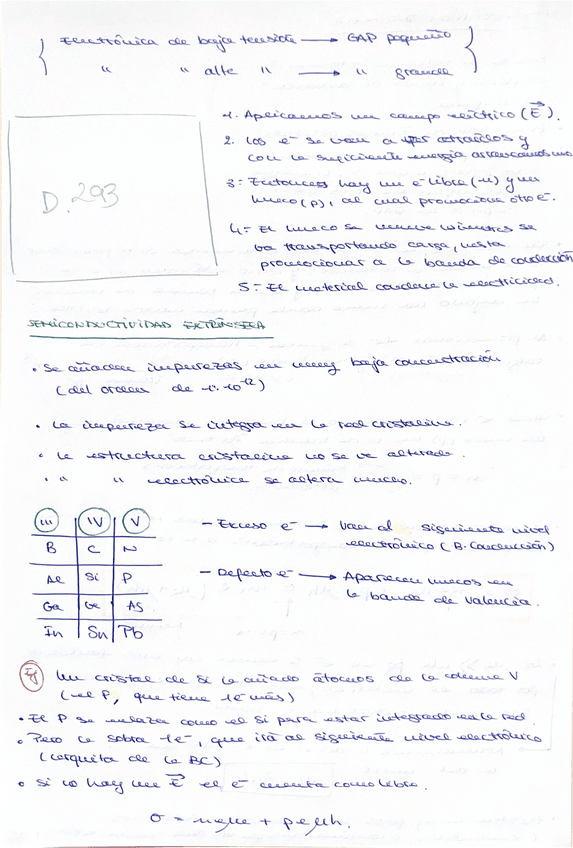 Electrónica de baja tensión → GAP pequeño
" " alta " → " grande
D. 293
1. Aplicamos un campo eléctrico (E⃗).
2. Los e⁻ se van a ver atraídos y
con la suficiente energía arrancamos uno
3: Entonces hay un e⁻ libre (n) y un
hueco (p), al cual promociona otro e⁻.
4: El hueco se mueve mientras se
va transportando carga, hasta
promocionar a la banda de conducción
5: El material conduce la electricidad.
SEMICONDUCTIVIDAD EXTRÍNSECA
• Se añaden impurezas en muy baja concentración
(del orden de 1·10⁻¹²)
• La impureza se integra en la red cristalina.
• La estructura cristalina no se ve alterada.
• " " electrónica se altera mucho.
III IV V
B C N
Al Si P
Ga Ge As
In Sn Pb
- Exceso e⁻ → Van al siguiente nivel
electrónico (B. Conducción)
- Defecto e⁻ → Aparecen huecos en
la banda de valencia.
Ej Un cristal de Si le añado átomos de la columna V
(el P, que tiene 1e⁻ más)
• El P se enlaza como el Si para estar integrado en la red.
• Pero le sobra 1e⁻, que irá al siguiente nivel electrónico
(cerquita de la BC)
• Si no hay un E⃗ el e⁻ cuenta como libre.
σ = neμe + peμh.